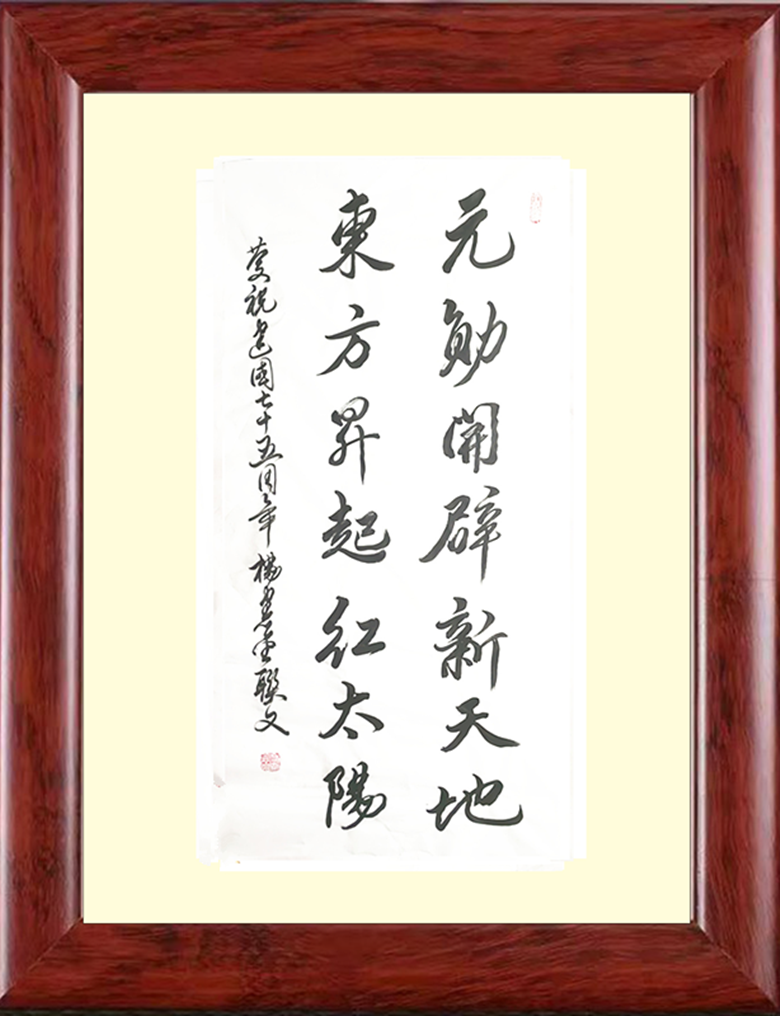 元勛開辟新天地
東方昇起红太陽
慶祝建國七十五周年 楊 聯文